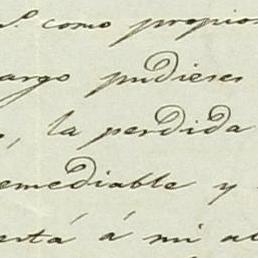 s.º como propios
argo pudieses
, la perdida
emediable y
entá á mi al